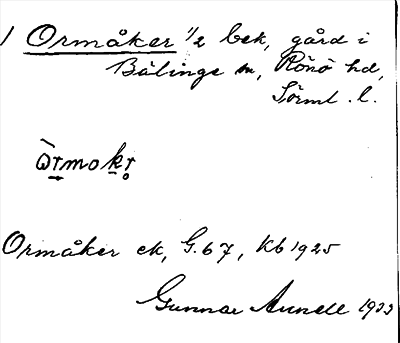 1 Ormåker 1/2 bek, gård i
Bälinge sn, Rönö hd,
Sörml. l.
òrmokr
Ormåker ek, G.67, Kb 1925
Gunnar Arnell 1933